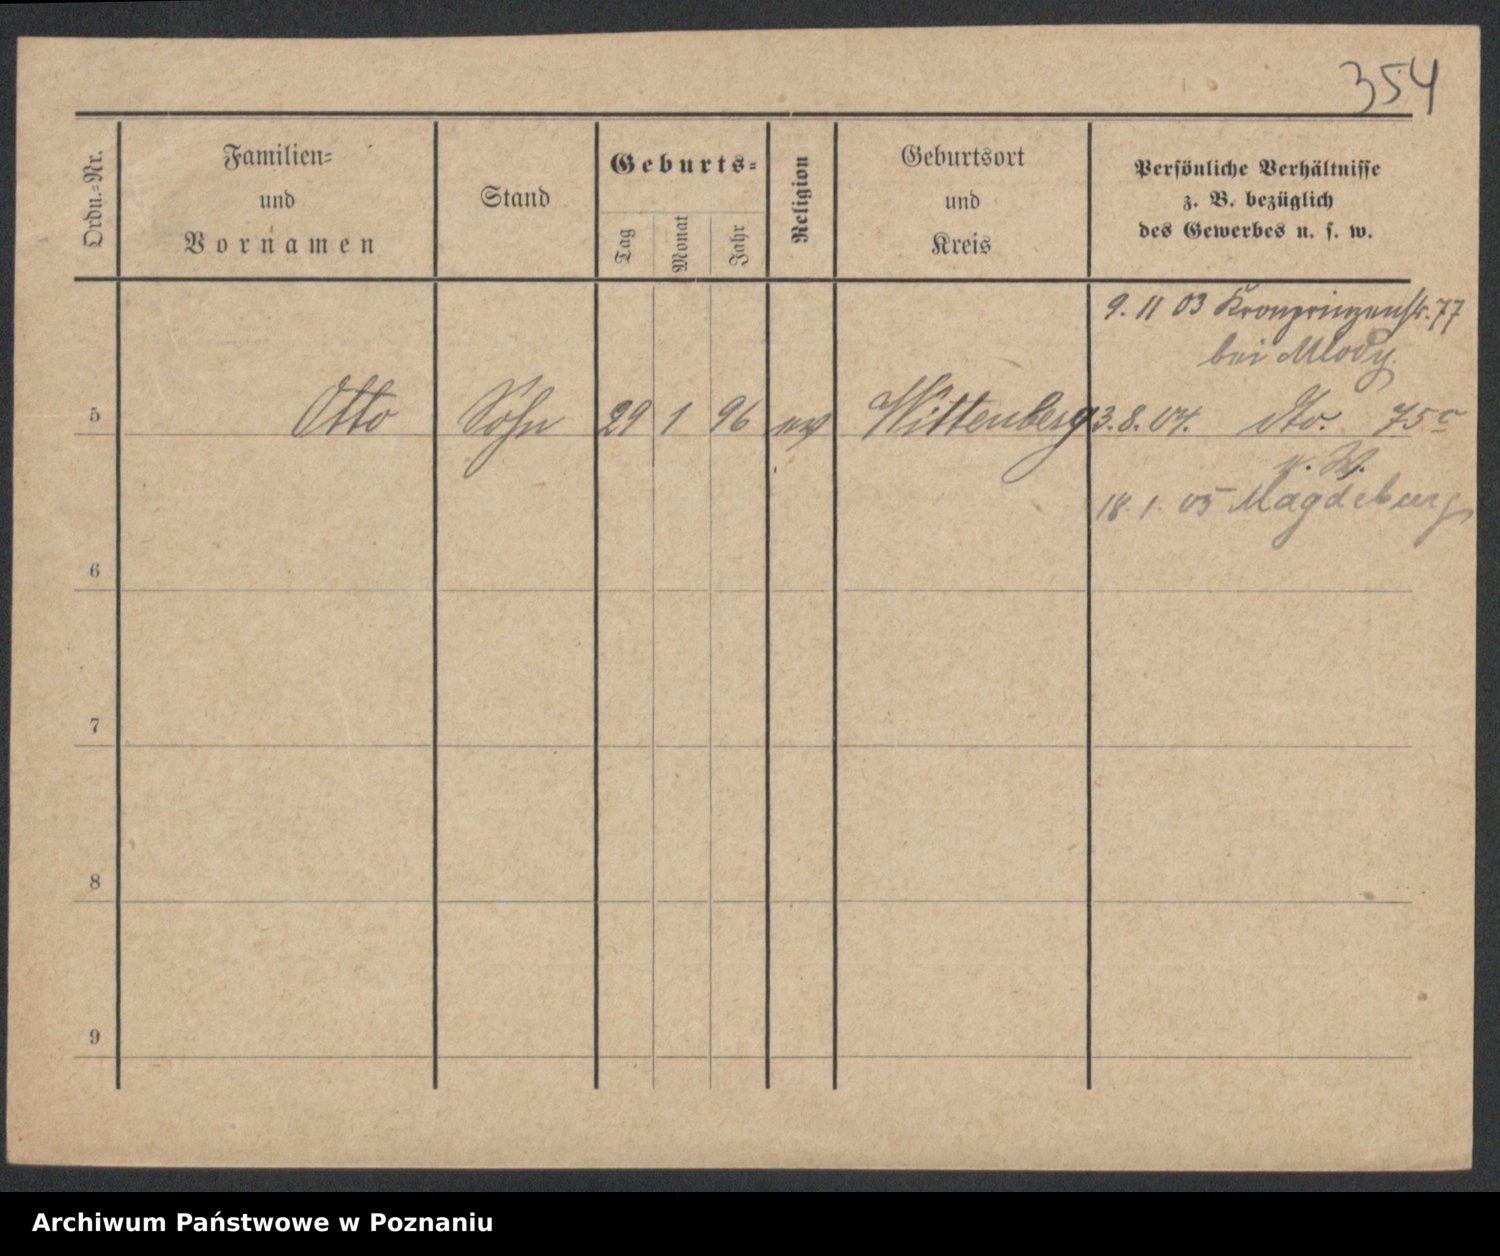 354
Ordn.=Nr.
Familien=
und
Vornamen
Stand
Geburts=
Tag
Monat
Jahr
Religion
Geburtsort
und
Kreis
Persönliche Verhältnisse
z. B. bezüglich
des Gewerbes u. s. w.
9. 11 03 Kronprinzenstr. 77
bei Mlody.
5 Otto Sohn 29 1 96 ev Wittenberg 3. 8. 04. dto. 75c
18. 1. 05 Magdeburg
6
7
8
9
Archiwum Państwowe w Poznaniu